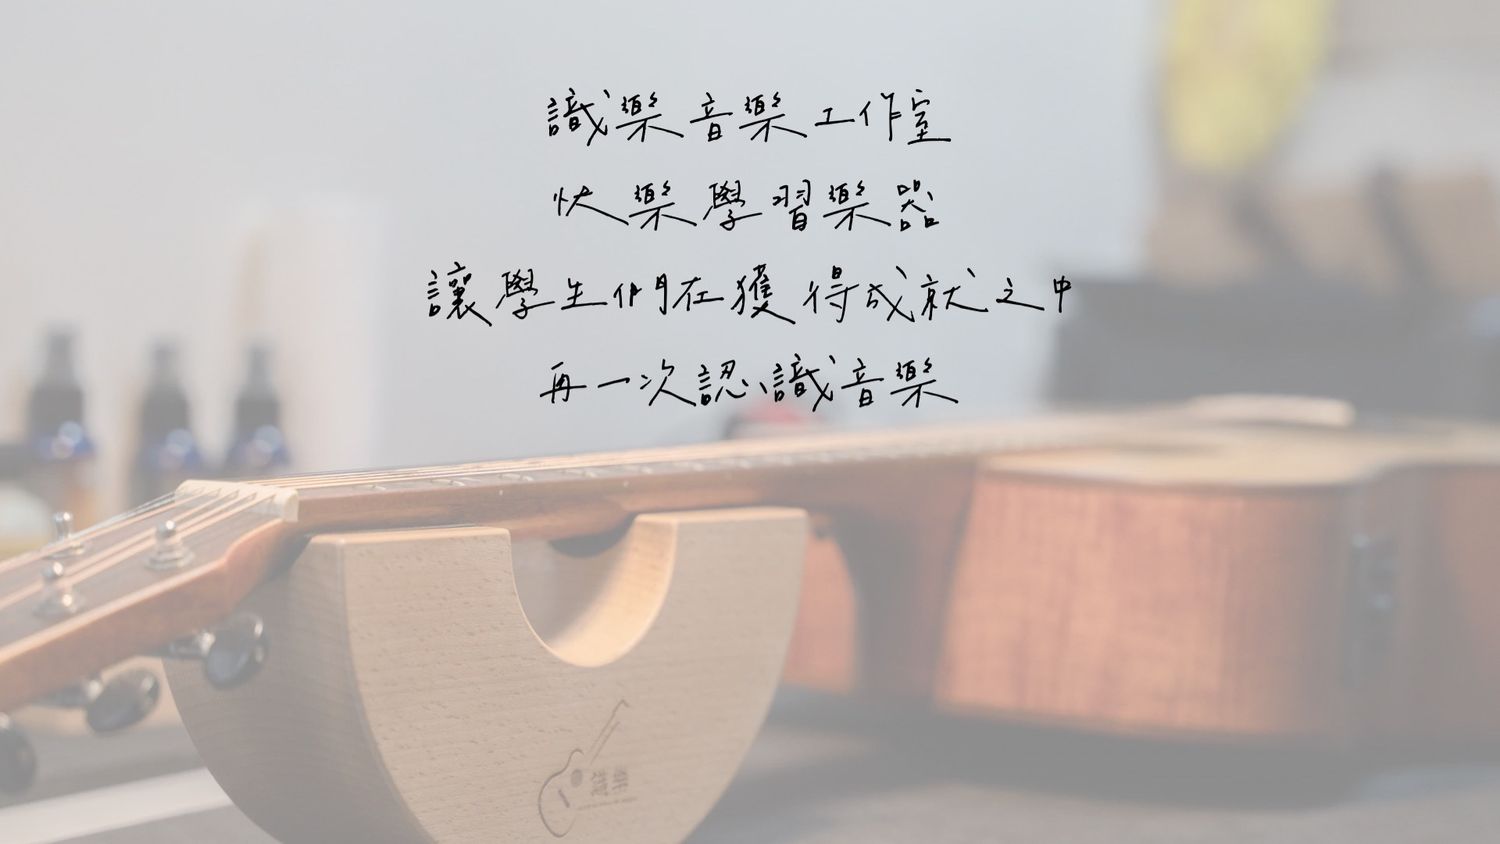 識樂音樂工作室
快樂學習樂器
讓學生們在獲得成就之中
再一次認識音樂
識樂